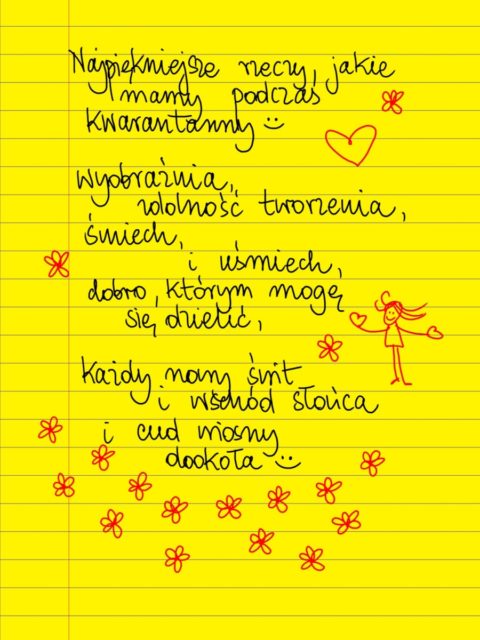 Najpiękniejsze rzeczy, jakie
mamy podczas
kwarantanny
wyobraźnia,
zdolność tworzenia,
śmiech,
i uśmiech,
dobro, którym mogę
się dzielić,
każdy nowy świt
i wschód słońca
i cud wiosny
dookoła